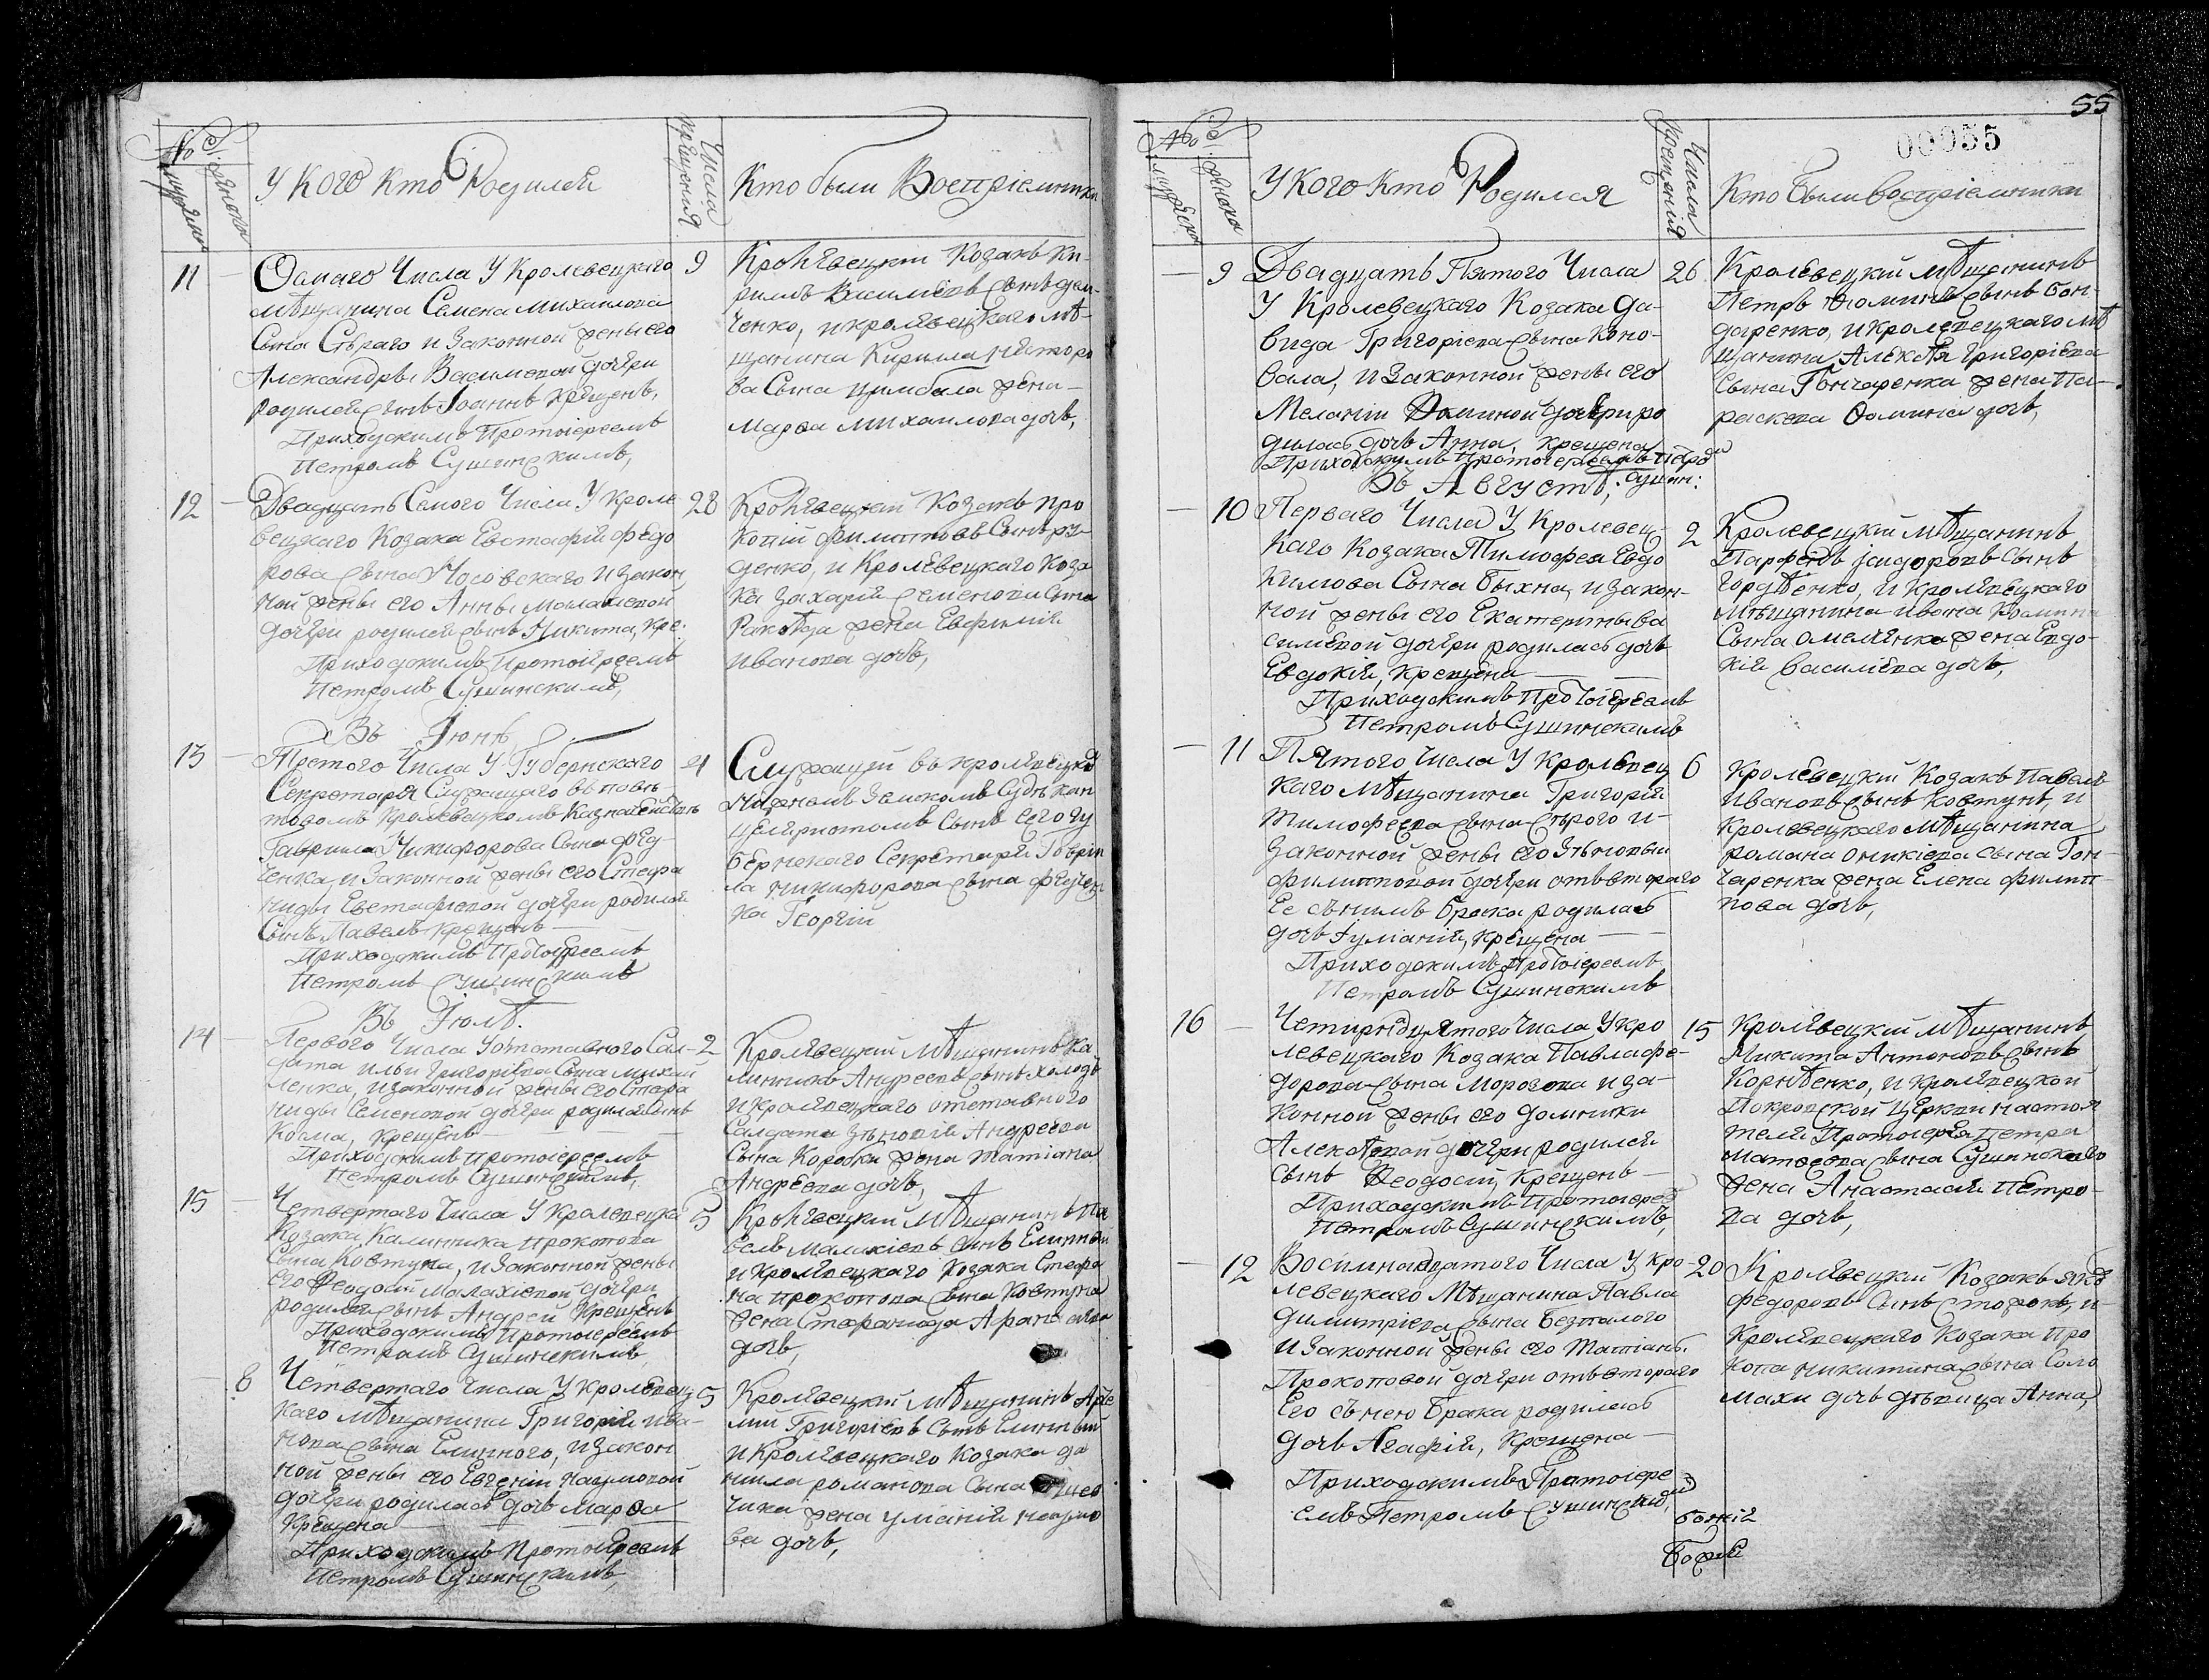 У Кого Кто Родился
Числа крещения
Кто были Восприемники
11
Осмаго Числа У Кролевецкаго
мѣщанина Семена Михаилова
Сына Сѣраго и Законной жены его
Александры Васильевой дочери
родился сынъ Іоаннъ крещенъ,
Приходскимъ Протоіереемъ
Петромъ Сушинскимъ,
9
Кролѣвецкій Козакъ Ки-
рилъ Василіевъ сынъ
ченко, и кролѣвецкаго мѣ-
щанина Кирила
ва Сына Цимбала жена
Марѳа Михаилова дочь,
12
Двадцать Семого Числа У Кроле
вецкаго Козака Евстафій Федо
рова сына Носовскаго и закон
ной жены его Анны Малахіевой
дочери родился сынъ Никита, кре:
Приходскимъ Протоіереемъ
Петромъ Сушинскимъ,
28
Кролѣвецкій Козакъ Про
копій Филиповъ Сынъ Ру-
денко, и Кролѣвецкаго Коза
ка Захарій Семенова Сына
жена Евфимія
Иванова дочь,
Въ Іюнѣ
13
Третого Числа У Губернскаго
Секретаря Служащаго въ повѣ-
товомъ Кролевецкомъ Казначействѣ
Гаврила Никифорова Сына Фед
ченка, и Законной жены его Стефа
ниды Евстафіевой дочери родился
Сынъ Павелъ крещенъ
Приходскимъ Протоіереемъ
Петромъ Сушинскимъ
4
Служащій въ кролѣвецкомъ
Нижнемъ Земскомъ Судѣ кан
целяристомъ Сынъ его Гу
бернскаго Секретаря Гаври
ла Никифорова сына Федчен
ка Георгій
Въ Іюлѣ.
14
Первого Числа У отставного Сал-
дата Ильи Григоріева Сына Михай
ленка, и законной жены его Стефа
ниды Семеновой дочери родился Сынъ
Косма, крещенъ
Приходскимъ протоіереемъ
Петромъ Сушинскимъ,
2
Кролѣвецкій Мѣщанинъ Ка
линникъ Андреевъ сынъ Холодъ
и кролѣвецкаго отставного
Салдата Зѣновій Андреева
Сына Коробки жена Татіана
Андреева дочь,
15
Четвертаго Числа У Кролевецка
Козака Калинника Прокопова
Сына Ковтуна, и Законной жены
его Ѳеодосіи Малахіевой дочери
родился сынъ Андрей Крещенъ
Приходскимъ Протоіереемъ
Петромъ Сушинскимъ
5
Кролѣвецкій Мѣщанинъ Па
велъ Малахіевъ сынъ Елинный
и Кролѣвецкаго Козака Стефа
на Прокопова сына Ковтуна
жена Стефанида
дочь,
8
Четвертаго Числа У Кролѣвец
каго мѣщанина Григорій Ива-
нова сына Елинного, и закон
ной жены его Евгеніи Наумовой
дочери родилась дочь Марѳа
Крещена
Приходскимъ Протоіереемъ
Петромъ Сушинскимъ,
5
Кролѣвецкій Мѣщанинъ Арте
мій Григоріевъ Сынъ Елинный
и Кролѣвецкаго Козака Да
нила Романова Сына
чика жена Уліянія Наумо
ва дочь,
55
00055
У Кого Кто Родился
Числа Крещенія
Кто Были Воспріемники
9
Двадцать Пятого Числа
У Кролевецкаго Козака Да-
вида Григоріева сына Коно-
вала, и Законной жены его
Меланіи Ѳоминой дочери ро
дилась дочь Анна, крещена
Приходскимъ Протоіереемъ Петро
Сушин:
26
Кролѣвецкій Мѣщанинъ
Петръ Ѳоминъ сынъ Бон-
даренко, и Кролѣвецкаго мѣ
щанина Алексѣя Григоріева
Сына Гончаренка жена Па-
раскева Ѳомина дочь,
Въ Августѣ,
10
Перваго Числа У Кролевец-
каго Козака Тимофеа Евдо
кимова Сына Быхна, и закон-
ной жены его Екатерины Ва
силѣвой дочери родилась дочь
Евдокія, Крещена
Приходскимъ Протоіереемъ
Петромъ Сушинскимъ
2
Кролевецкій Мѣщанинъ
Парфенъ Ісидоровъ Сынъ
Гордѣенко, и Кролѣвецкаго
Мѣщанина Ивана
Сына Омеленка жена Евдо-
кія Василіева дочь,
11
Пятого Числа У Кролѣвец
каго Мѣщанина Григорій
Тимофеева сына Сѣрого и
Законной жены его Зѣновіи
Филиповой дочери отъ втораго
Ее съ нимъ брака родилась
дочь Іуліанія, крещена
Приходскимъ Протоіереемъ
Петромъ Сушинскимъ
6
Кролѣвецкій Козакъ Павелъ
Ивановъ сынъ Ковтунъ, и
Кролевецкаго Мѣщанина
Романа Оникіева сына Гон-
чаренка жена Елена Филип
пова дочь,
16
Четирнадцятого Числа У Кро
левецкаго Козака Павла Фе-
дорова сына Морозова и за-
конной жены его Домники
Алексѣевой дочери родился
сынъ Ѳеодосій, Крещенъ
Приходскимъ Протоіерее
Петромъ Сушинскимъ,
15
Кролѣвецкій Мѣщанинъ
Микита Антоновъ сынъ
Корнѣенко, и Кролѣвецкой
Покровской Церкви настоя
теля Протоіерея Петра
Матѳеева сына Сушинскаго
жена Анастасія Петро-
ва дочь,
12
Восімнадцатого Числа У Кро-
левецкаго Мѣщанина Павла
Димитріева сына Безпалого
и Законной жены его Татіаны
Прокоповой дочери отъ втораго
Его съ нею брака родилась
дочь Агафія, Крещена
Приходскимъ Протоіере
емъ Петромъ Сушинским
20
Кролѣвецкій Козакъ
Федоровъ Сынъ Сторожъ, и
Кролѣвецкаго Козака Про
копа Никитина сына Соло
махи дочь дѣвица Анна,
божій
Божій